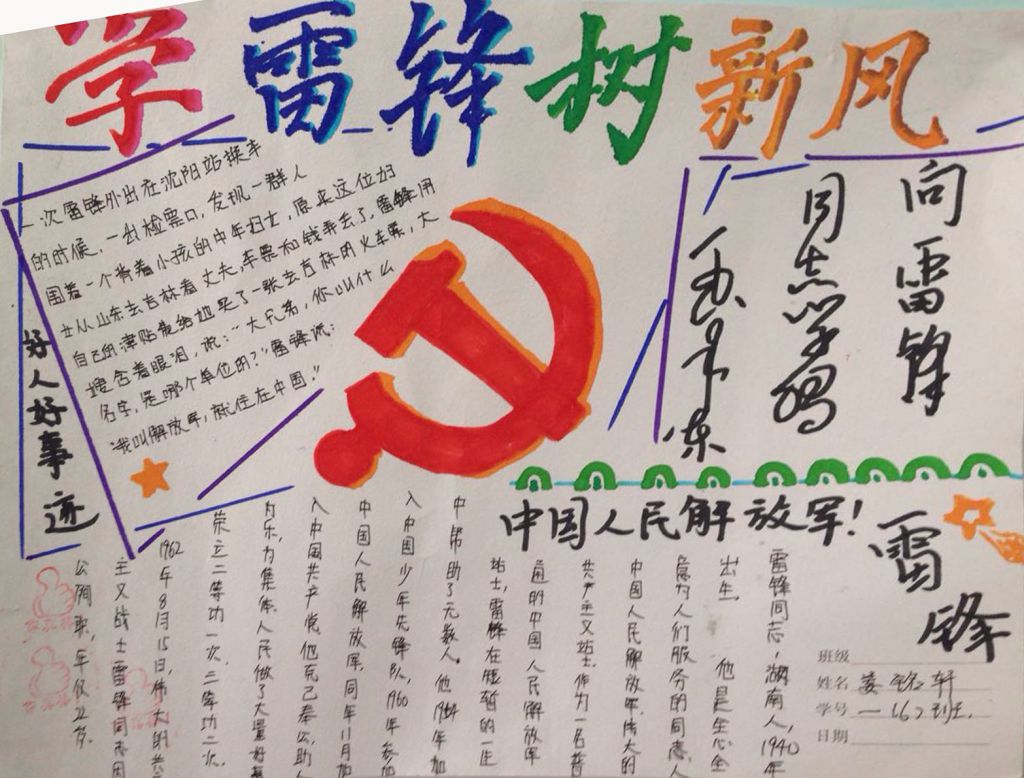 学雷锋树新风
一次雷锋外出在沈阳站换车
的时候,一出检票口,发现一群人
围着一个背着小孩的中年妇女,原来这位妇
女从山东去吉林看丈夫,车票和钱弄丢了,雷锋用
自己的津贴费给她买了一张去吉林的火车票,大
嫂含着眼泪,说:“大兄弟,你叫什么
名字,是哪个单位的?”雷锋说:
“我叫解放军,就住在中国。”
好人好事迹
向雷锋
同志学习
毛泽东
中国人民解放军!
雷锋
雷锋同志,湖南人,1940年
出生,他是全心全
意为人们服务的同志,人
中国人民解放军伟大的
共产主义战士,作为一名普
通的中国人民解放军
战士,雷锋在短暂的一生
中帮助了无数人。他1954年加
入中国少年先锋队,1960年参加
中国人民解放军,同年11月加
入中国共产党他克己奉公,助人
为乐,为集体人民做了大量好事
荣立二等功一次,三等功二次。
1962年8月15日,伟大的共
主义战士雷锋同志因
公殉职,年仅22岁。
班级
姓名 娄铭轩
学号 一(6)班.
日期